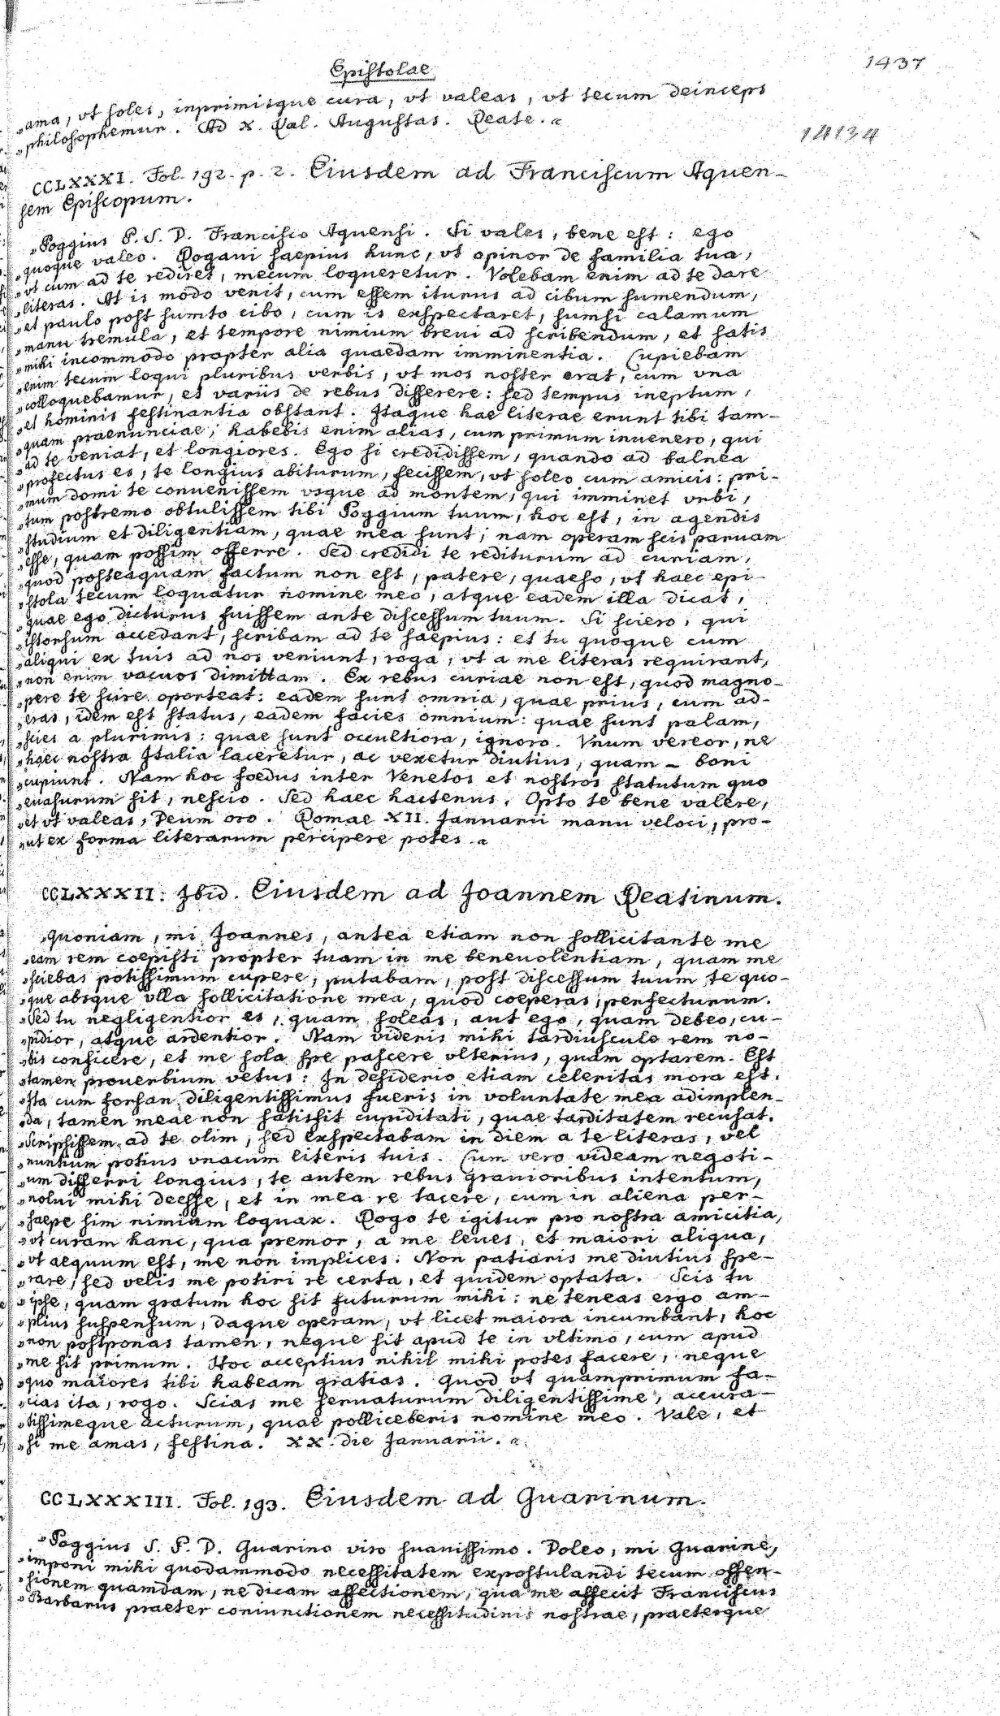 Epistolae
1437
„ama, vt soles, inprimisque cura, vt valeas, vt tecum deinceps
„philosophemur. Ad X. Kal. Augustas. Reate.“
14134
CCLXXXI. Fol. 192. p. 2. Eiusdem ad Franciscum Aquen-
sem Episcopum.
„Poggius P. S. D. Francisco Aquensi. Si vales, bene est: ego
„quoque valeo. Rogaui saepius hunc, vt opinor de familia tua,
„vt cum ad te rediret, mecum loqueretur. Volebam enim ad te dare
„literas. At is modo venit, cum essem iturus ad cibum sumendum,
„et paulo post sumto cibo, cum is exspectaret, sumsi calamum
„manu tremula, et tempore nimium breui ad scribendum, et satis
„mihi incommodo propter alia quaedam imminentia. Cupiebam
„enim tecum loqui pluribus verbis, vt mos noster erat, cum vna
„colloquebamur, et variis de rebus differere: sed tempus ineptum,
„et hominis festinantia obstant. Itaque hae literae erunt tibi tam-
„quam praenunciae; habebis enim alias, cum primum inuenero, qui
„ad te veniat, et longiores. Ego si credidissem, quando ad balnea
„profectus es, te longius abiturum, fecissem, vt soleo cum amicis: pri-
„mum domi te conuenissem vsque ad montem, qui imminet vrbi,
„tum postremo obtulissem tibi Poggium tuum, hoc est, in agendis
„studium et diligentiam, quae mea sunt; nam operam scis paruam
„esse, quam possim offerre. Sed credidi te rediturum ad curiam,
„quod posteaquam factum non est, patere, quaeso, vt haec epi-
„stola tecum loquatur nomine meo, atque eadem illa dicat,
„quae ego dicturus fuissem ante discessum tuum. Si sciero, qui
„istorsum accedant, scribam ad te saepius: et tu quoque cum
„aliqui ex tuis ad nos veniunt, roga, vt a me literas requirant,
„non enim vacuos dimittam. Ex rebus curiae non est, quod magno-
„pere te scire oporteat: eadem sunt omnia, quae prius, cum ad-
„eras, idem est status, eadem facies omnium: quae sunt palam,
„scies a plurimis: quae sunt occultiora, ignoro. Vnum vereor, ne
„haec nostra Italia laceretur, ac vexetur diutius, quam – boni
„cupiunt. Nam hoc foedus inter Venetos et nostros statutum quo
„euasurum sit, nescio. Sed haec hactenus. Opto te bene valere,
„et vt valeas, Deum oro. Romae XII. Januarii manu veloci, pro-
„ut ex forma literarum percipere potes.“
CCLXXXII. Ibid. Eiusdem ad Joannem Reatinum.
„Quoniam, mi Joannes, antea etiam non sollicitante me
„eam rem coepisti propter tuam in me beneuolentiam, quam me
„sciebas potissimum cupere, putabam, post discessum tuum te quo-
„que absque vlla sollicitatione mea, quod coeperas, perfecturum.
„Sed tu negligentior es, quam soleas, aut ego, quam debeo, cu-
„pidior, atque ardentior. Nam videris mihi tardiuscule rem no-
„bis conficere, et me sola spe pascere vlterius, quam optarem. Est
„tamen prouerbium vetus: In desiderio etiam celeritas mora est.
„Ita cum forsan diligentissimus fueris in voluntate mea adimplen-
„da, tamen meae non satisfit cupiditati, quae tarditatem recusat.
„Scripsissem ad te olim, sed exspectabam in diem a te literas, vel
„nuntium potius vnacum literis tuis. Cum vero videam negoti-
„um differri longius, te autem rebus grauioribus intentum,
„nolui mihi deesse, et in mea re tacere, cum in aliena per-
„saepe sim nimium loquax. Rogo te igitur pro nostra amicitia,
„vt curam hanc, qua premor, a me leues, et maiori aliqua,
„vt aequum est, me non implices. Non patiaris me diutius spe-
„rare, sed velis me potiri re certa, et quidem optata. Scis tu
„ipse, quam gratum hoc sit futurum mihi: ne teneas ergo am-
„plius suspensum, daque operam, vt licet maiora incumbant, hoc
„non postponas tamen, neque sit apud te in vltimo, cum apud
„me sit primum. Hoc acceptius nihil mihi potes facere, neque
„quo maiores tibi habeam gratias. Quod vt quamprimum fa-
„cias ita, rogo. Scias me seruaturum diligentissime, accura-
„tissimeque acturum, quae polliceberis nomine meo. Vale, et
„si me amas, festina. XX. die Januarii.“
CCLXXXIII. Fol. 193. Eiusdem ad Guarinum.
„Poggius S. P. D. Guarino viro suauissimo. Doleo, mi Guarine,
„imponi mihi quodammodo necessitatem expostulandi tecum offen-
„sionem quamdam, ne dicam affectionem, qua me affecit Franciscus
„Barbarus praeter coniunctionem necessitudinis nostrae, praeterque